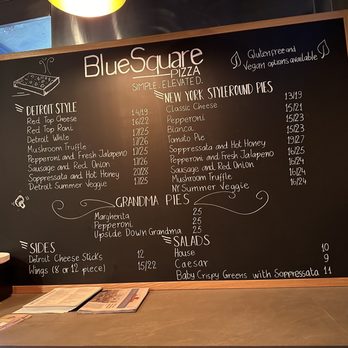 BlueSquare
PIZZA
SIMPLE. ELEVATED.
Gluten free and
Vegan options available
DETROIT STYLE
Red Top Cheese 14/19
Red Top Roni 16/22
Detroit White 17/25
Mushroom Truffle 17/26
Pepperoni and Fresh Jalapeno 17/25
Sausage and Red Onion 17/26
Soppressata and Hot Honey 20/28
Detroit Summer Veggie 17/25
NEW YORK STYLE ROUND PIES
Classic Cheese 13/19
Pepperoni 15/21
Bianca 15/23
Tomato Pie 15/23
Soppressata and Hot Honey 19/27
Pepperoni and Fresh Jalapeno 16/24
Sausage and Red Onion 16/25
Mushroom Truffle 16/24
NY Summer Veggie 16/24
GRANDMA PIES
Margherita 25
Pepperoni 25
Upside Down Grandma 25
SIDES
Detroit Cheese Sticks 12
Wings (8 or 12 piece) 15/22
SALADS
House 10
Caesar 9
Baby Crispy Greens with Soppressata 11